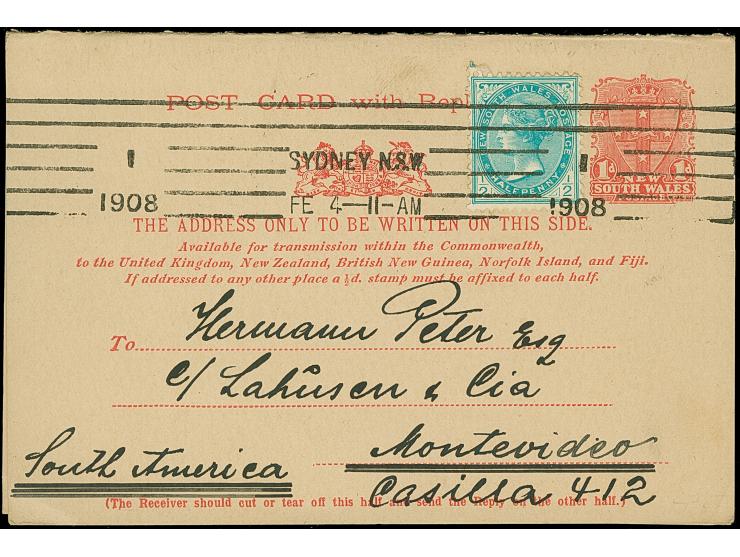 POST CARD with Repl
NEW SOUTH WALES POSTAGE
HALFPENNY
1/2 1/2
1d 1d
NEW
SOUTH WALES
1 SYDNEY N.S.W. 1
1908 FE 4—11-AM 1908
THE ADDRESS ONLY TO BE WRITTEN ON THIS SIDE.
Available for transmission within the Commonwealth,
to the United Kingdom, New Zealand, British New Guinea, Norfolk Island, and Fiji.
If addressed to any other place a ½d. stamp must be affixed to each half.
To Hermann Peter Esq
c/ Lahusen & Cia
Montevideo
South America
Casilla 412
(The Receiver should cut or tear off this half and send the Reply on the other half.)